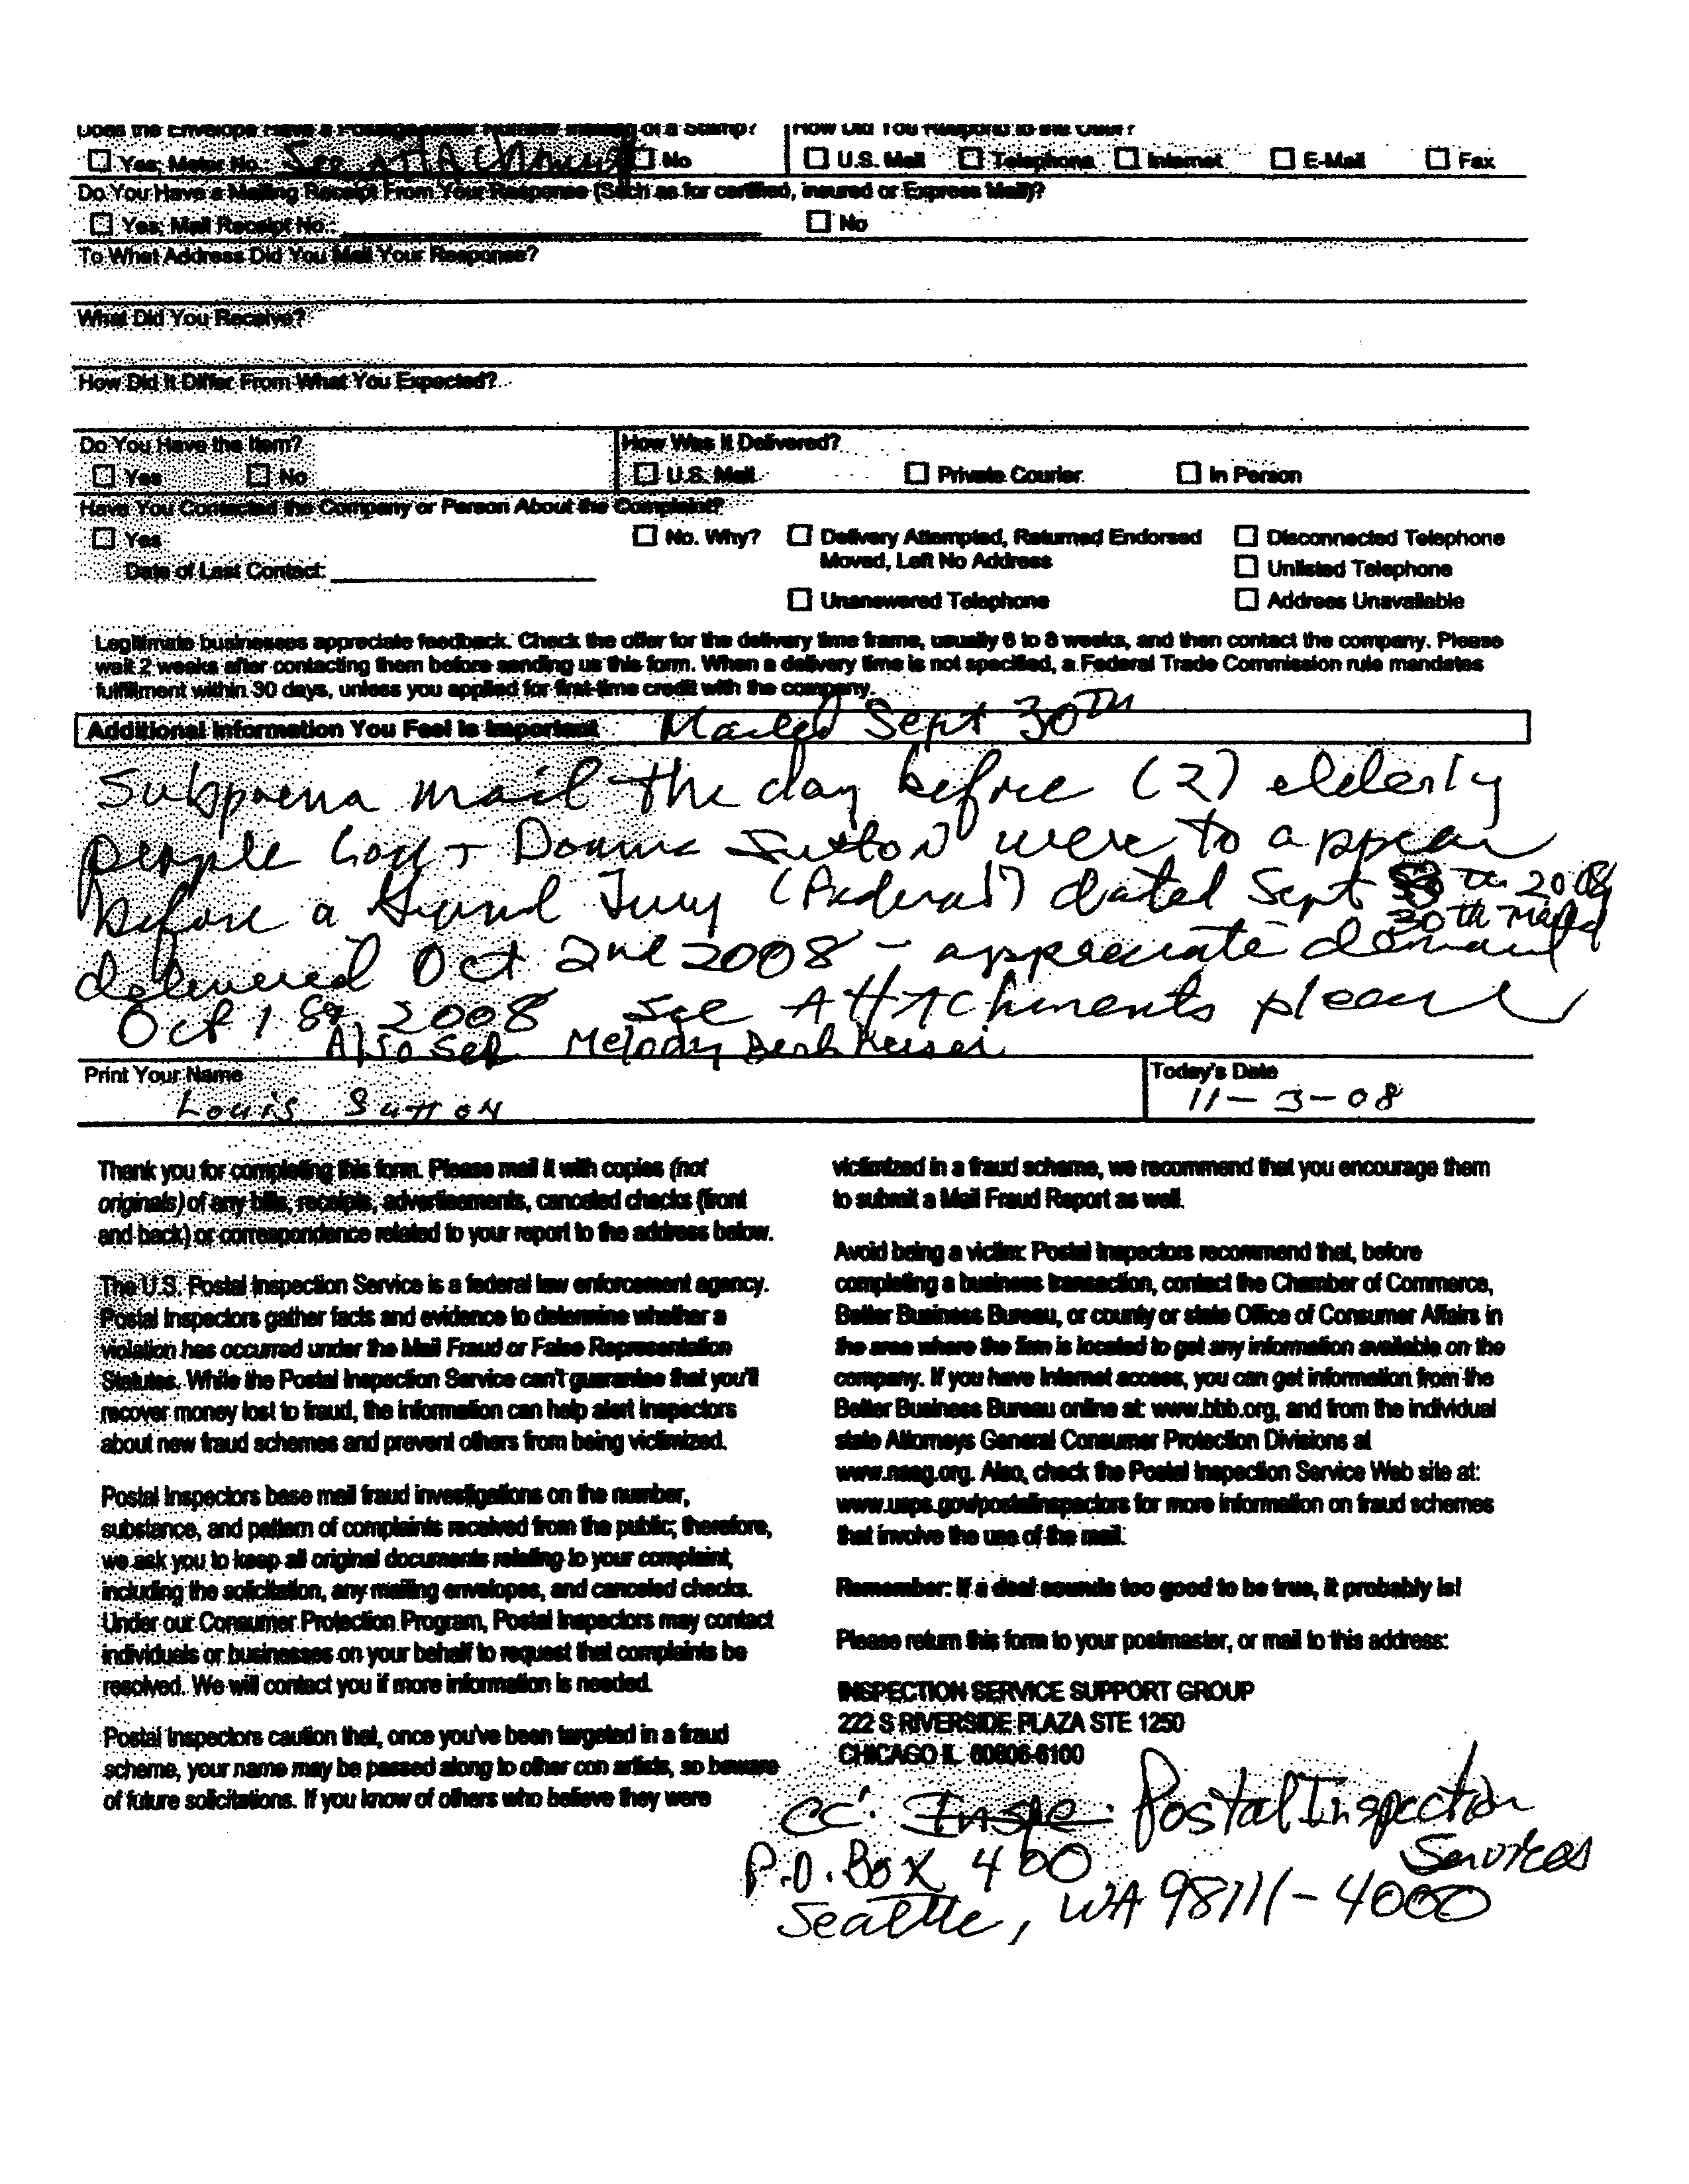 Does the Envelope Have a Postage Meter Number Instead of a Stamp? How Did You Respond to the Offer?
☐ Yes; Meter No.: See ATTAChment ☐ No ☐ U.S. Mail ☐ Telephone ☐ Internet ☐ E-Mail ☐ Fax
Do You Have a Mailing Receipt From Your Response (Such as for certified, insured or Express Mail)?
☐ Yes; Mail Receipt No.: ☐ No
To What Address Did You Mail Your Response?
What Did You Receive?
How Did It Differ From What You Expected?
Do You Have the Item? How Was It Delivered?
☐ Yes ☐ No ☐ U.S. Mail ☐ Private Courier ☐ In Person
Have You Contacted the Company or Person About the Complaint?
☐ Yes ☐ No. Why? ☐ Delivery Attempted, Returned Endorsed ☐ Disconnected Telephone
Moved, Left No Address ☐ Unlisted Telephone
Date of Last Contact:
☐ Unanswered Telephone ☐ Address Unavailable
Legitimate businesses appreciate feedback. Check the offer for the delivery time frame, usually 6 to 8 weeks, and then contact the company. Please
wait 2 weeks after contacting them before sending us this form. When a delivery time is not specified, a Federal Trade Commission rule mandates
fulfillment within 30 days, unless you applied for first-time credit with the company.
Additional Information You Feel is Important Mailed Sept 30TH
Subpoena mail the day before (2) elderly
people Lou + Donna Sutton were to appear
before a Grand Jury (Federal) dated Sept 30th 2008
30th Mailed
delivered Oct 2nd 2008 - appreciate demand
Oct 1st 2008 See ATTAChments please
Also See Melody
Print Your Name Today's Date
Louis Sutton 11-3-08
Thank you for completing this form. Please mail it with copies (not
originals) of any bills, receipts, advertisements, canceled checks (front
and back) or correspondence related to your report to the address below.
The U.S. Postal Inspection Service is a federal law enforcement agency.
Postal Inspectors gather facts and evidence to determine whether a
violation has occurred under the Mail Fraud or False Representation
Statutes. While the Postal Inspection Service can't guarantee that you'll
recover money lost to fraud, the information can help alert inspectors
about new fraud schemes and prevent others from being victimized.
Postal Inspectors base mail fraud investigations on the number,
substance, and pattern of complaints received from the public; therefore,
we ask you to keep all original documents relating to your complaint,
including the solicitation, any mailing envelopes, and canceled checks.
Under our Consumer Protection Program, Postal Inspectors may contact
individuals or businesses on your behalf to request that complaints be
resolved. We will contact you if more information is needed.
Postal Inspectors caution that, once you've been targeted in a fraud
scheme, your name may be passed along to other con artists, so beware
of future solicitations. If you know of others who believe they were
victimized in a fraud scheme, we recommend that you encourage them
to submit a Mail Fraud Report as well.
Avoid being a victim: Postal Inspectors recommend that, before
completing a business transaction, contact the Chamber of Commerce,
Better Business Bureau, or county or state Office of Consumer Affairs in
the area where the firm is located to get any information available on the
company. If you have Internet access, you can get information from the
Better Business Bureau online at: www.bbb.org, and from the individual
state Attorneys General Consumer Protection Divisions at
www.naag.org. Also, check the Postal Inspection Service Web site at:
www.usps.gov/postalinspectors for more information on fraud schemes
that involve the use of the mail.
Remember: If a deal sounds too good to be true, it probably is!
Please return this form to your postmaster, or mail to this address:
INSPECTION SERVICE SUPPORT GROUP
222 S RIVERSIDE PLAZA STE 1250
CHICAGO IL 60606-6100
cc: Inspe. Postal Inspection
Services
P.O. Box 400
Seattle, WA 98111-4000